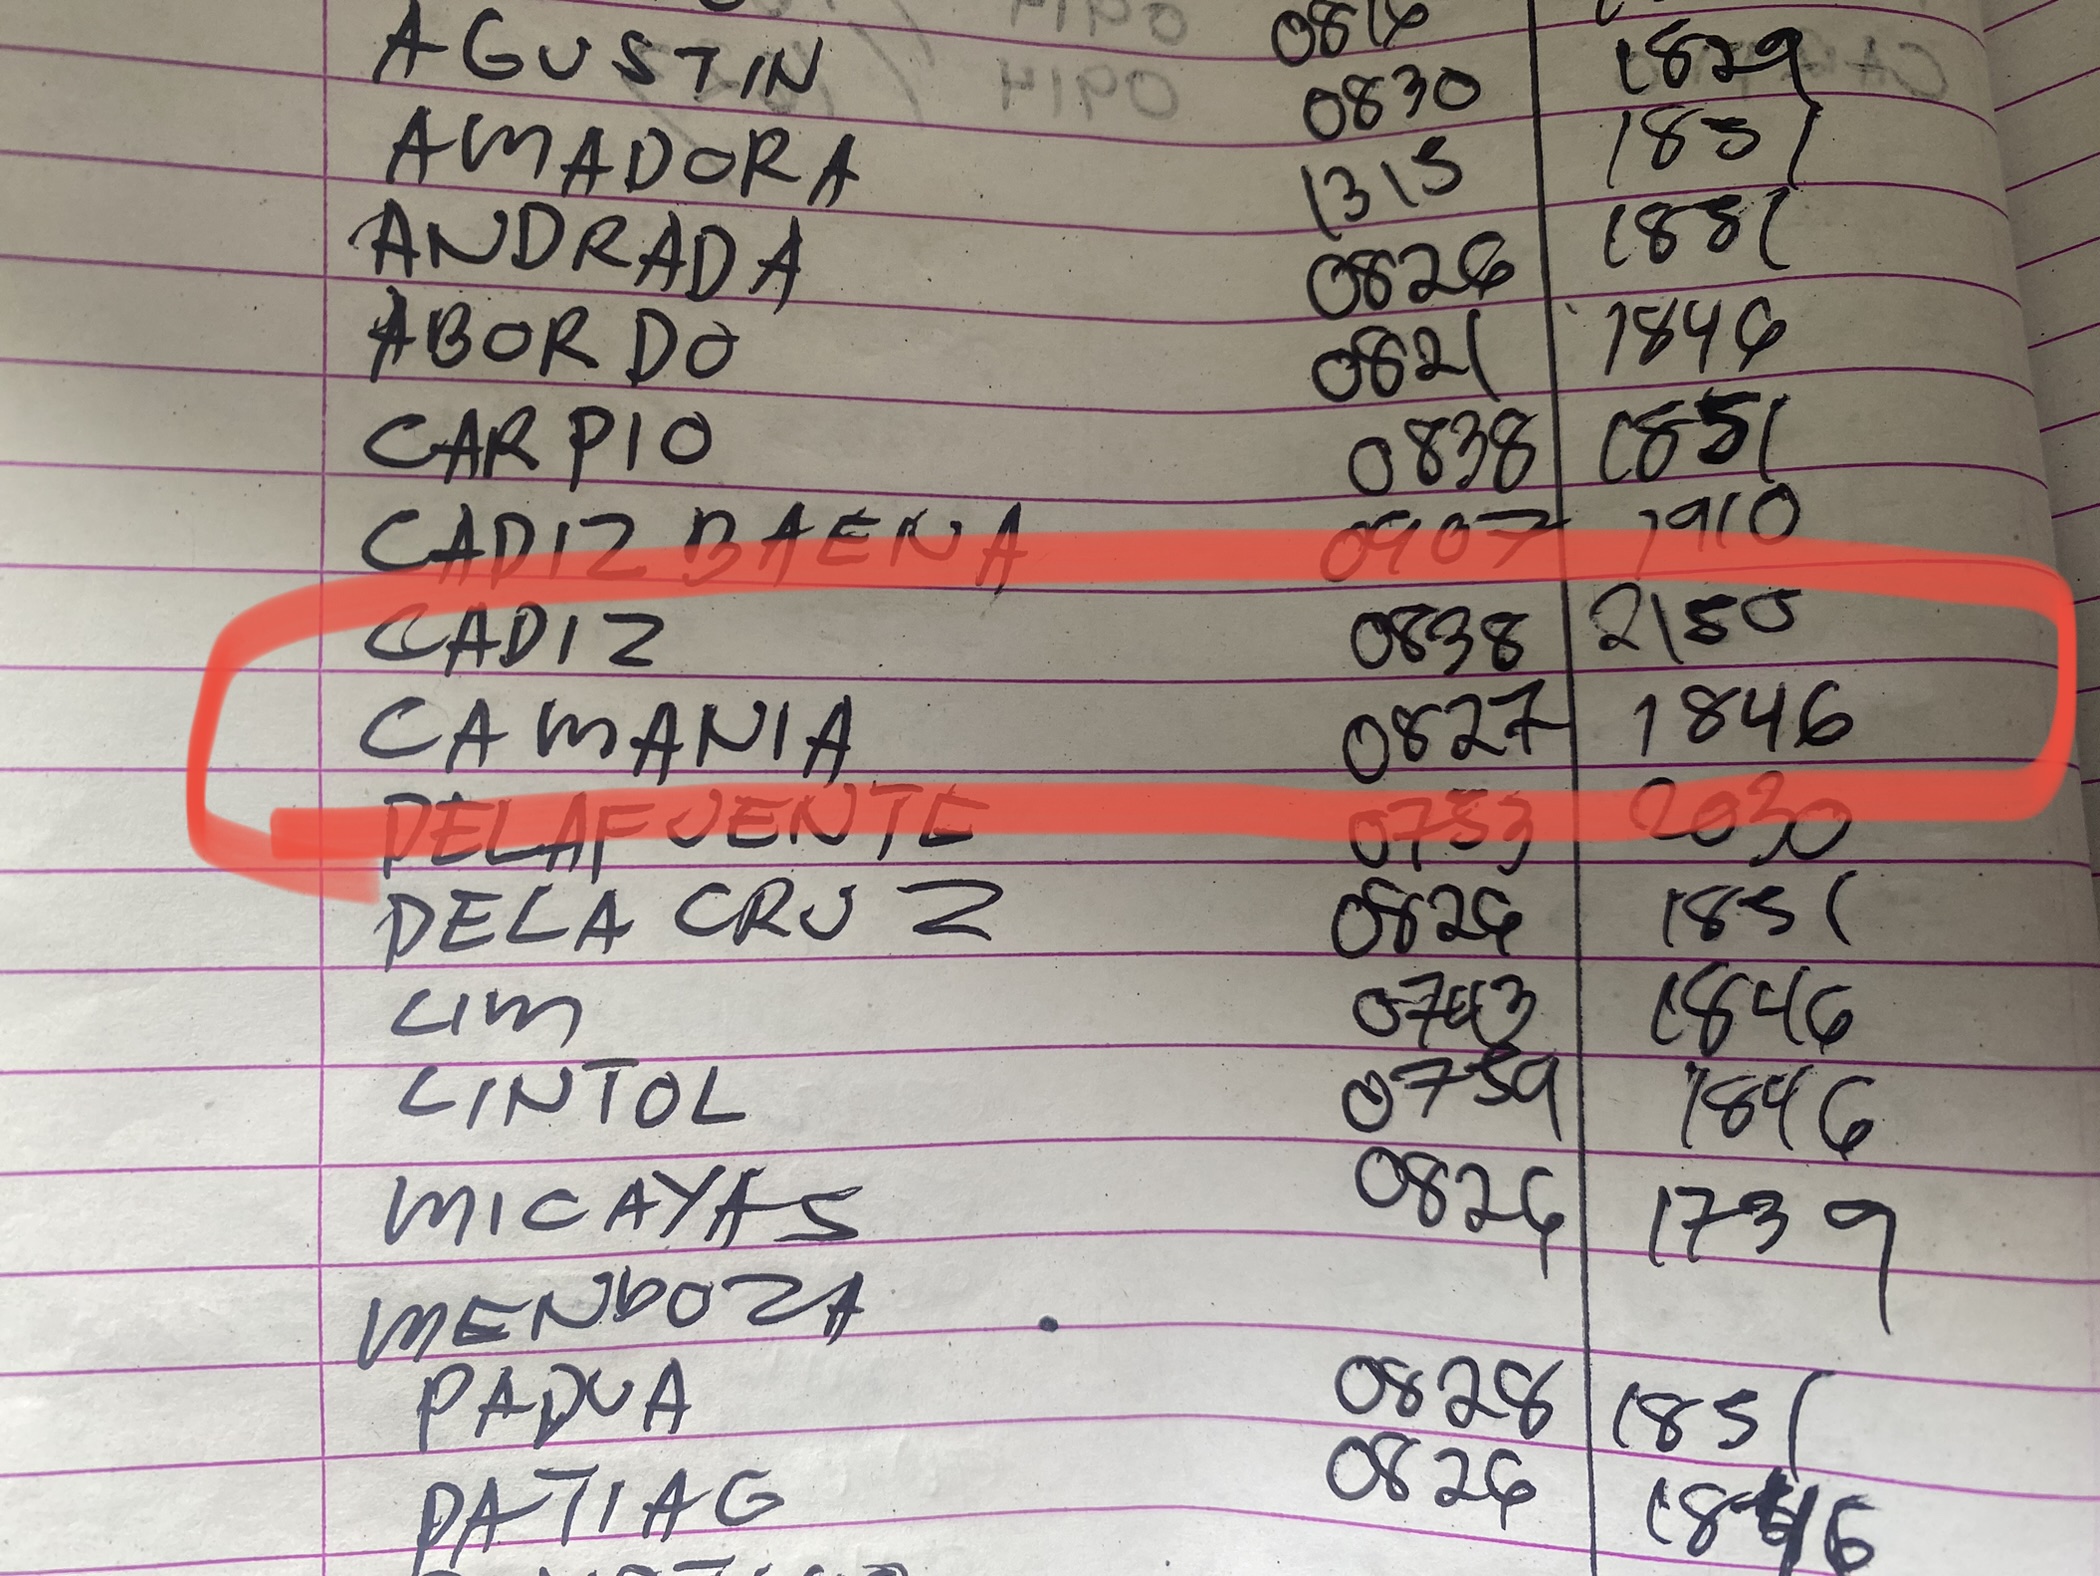 AGUSTIN 0830 1829
AMADORA 1315 1851
ANDRADA 0826 1851
ABORDO 0821 1846
CARPIO 0838 1851
CADIZ BAENA 0907 1910
CADIZ 0838 2150
CAMANIA 0827 1846
DELAFUENTE 0753 2030
DELA CRUZ 0826 1851
LIM 0743 1846
LINTOL 0759 1846
MICAYAS 0826 1739
MENDOZA
PADUA 0828 1851
PATIAG 0826 1846